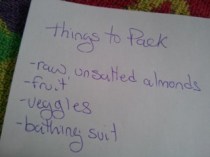 things to Pack
-raw, unsalted almonds
-fruit
-veggies
-bathing suit